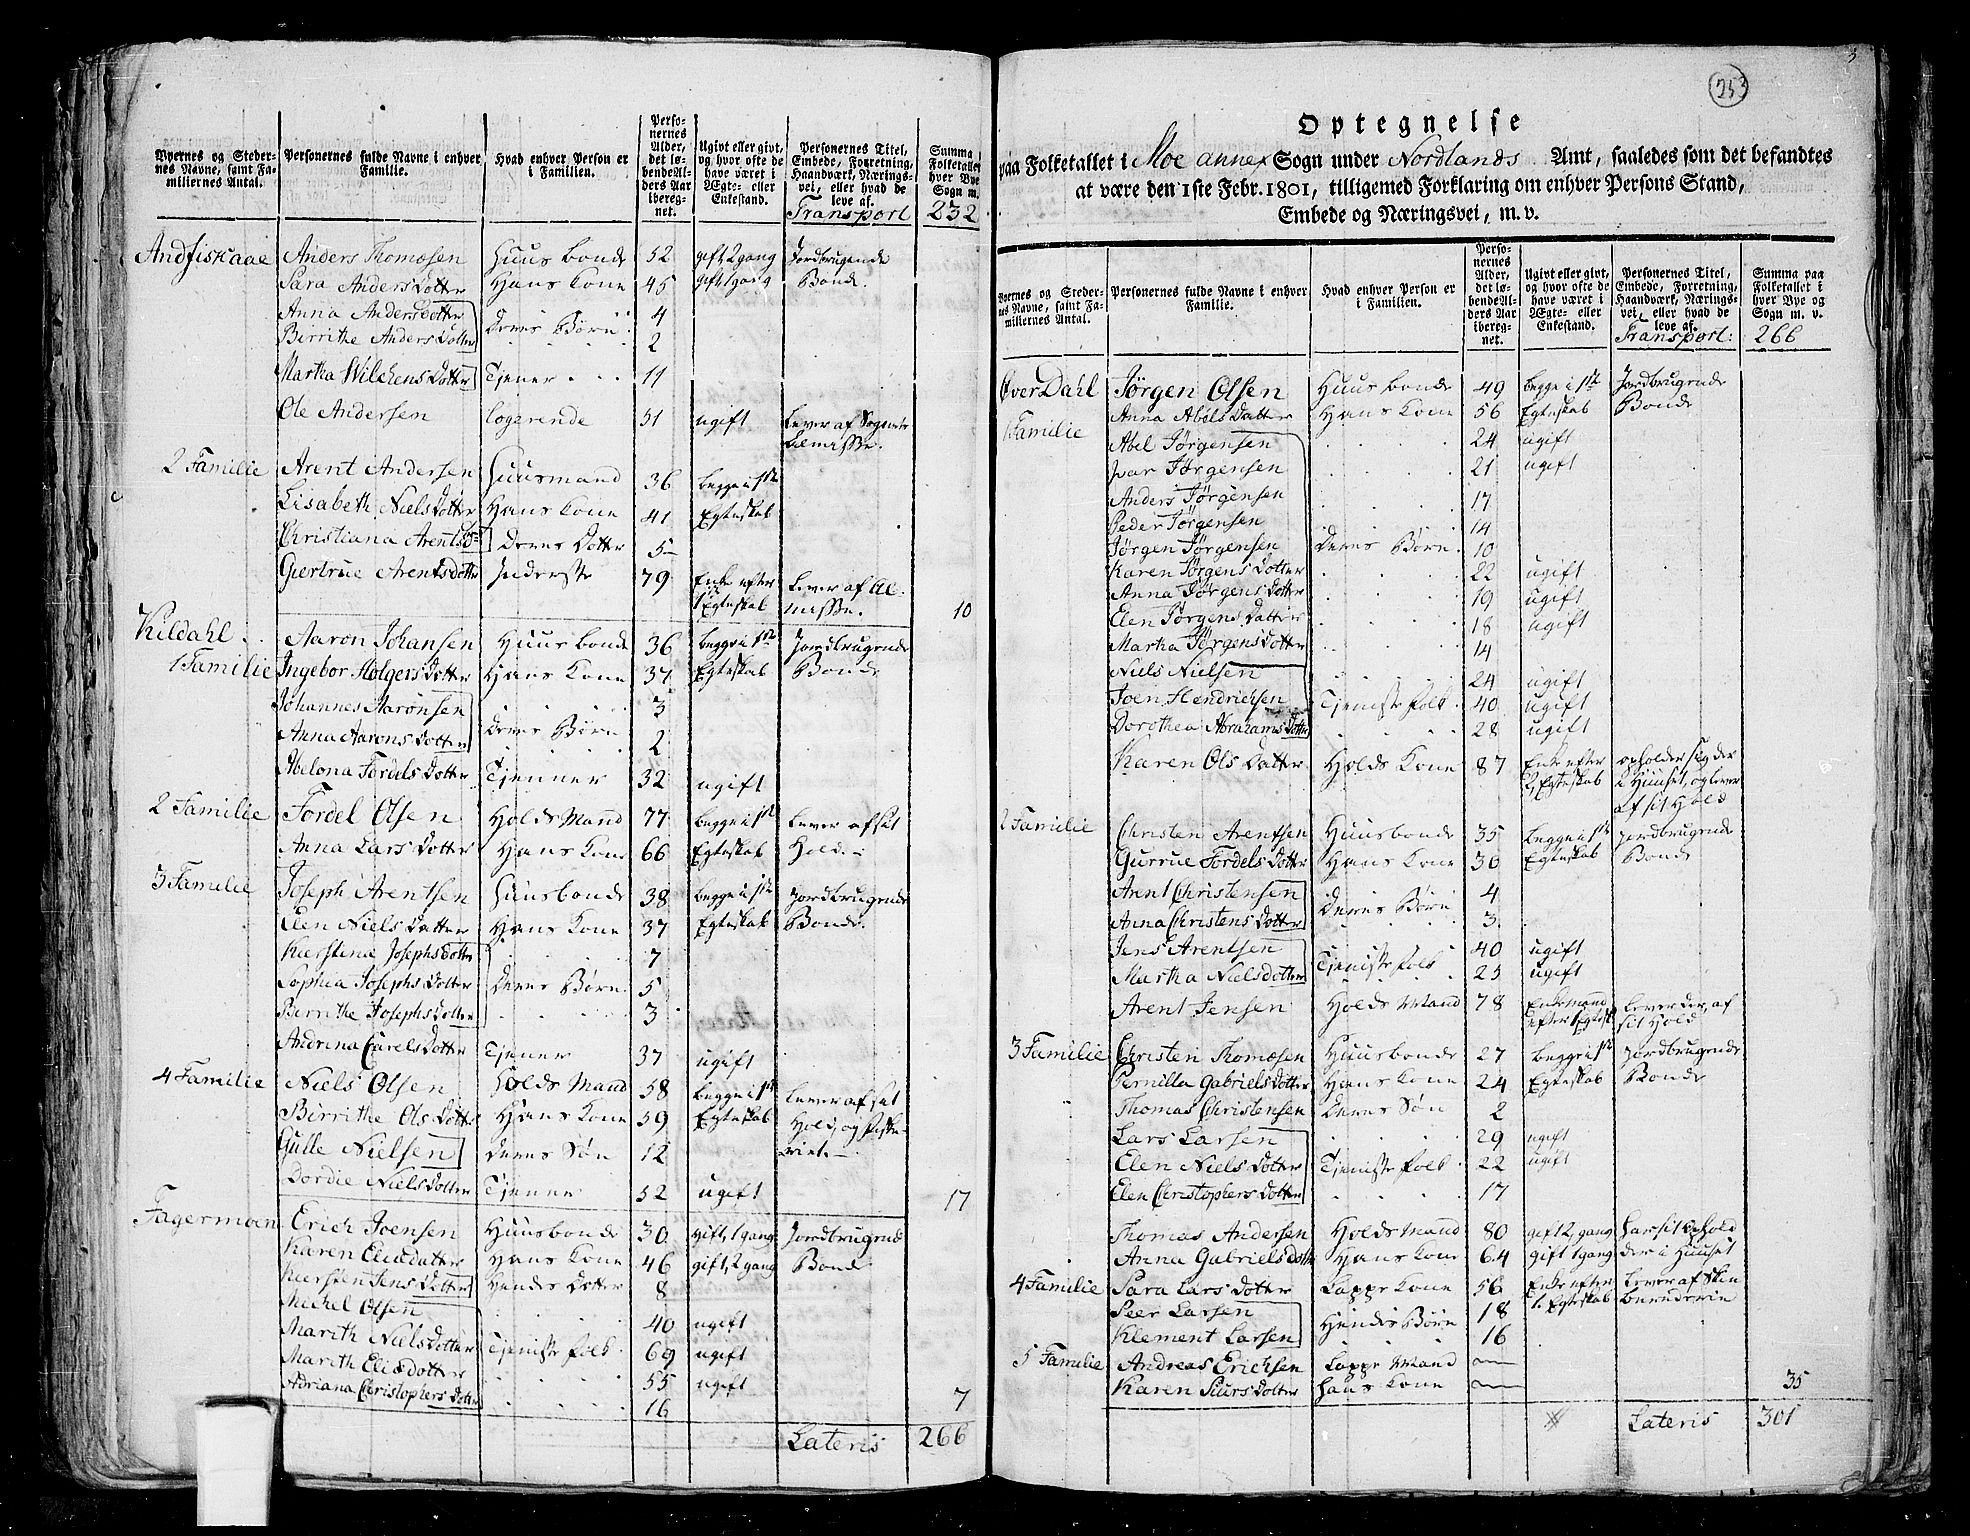 Byernes og Steder-
nes Navne, samt Fa-
miliernes Antal.
Personernes fulde Navne i enhver
Familie.
Hvad enhver Person er
i Familien.
Perso-
nernes
Alder,
det lø-
bende Al-
ders Aar
ibereg-
net.
Ugivt eller givt,
og hvor ofte de
have været i
Ægte- eller
Enkestand.
Personernes Titel,
Embede, Forretning,
Haandværk, Nærings-
vei, eller hvad de
leve af.
Summa paa
Folketallet i
hver Bye og
Sogn m. v.
Transport 232
Andfiskaae Anders Thomæsen Huusbonde 52 gift 2 gang Jordbrugende
Sara Anders Dotter Hans Kone 45 gift 1 gang Bonde.
Anna Andersdotter 4
Deres Børn
Birrithe Anders Dotter 2
Martha Wilchens Dotter Tjener 11
Ole Andersen Logerende 51 ugift Lever af Sognets
Almisse.
2 Familie Arent Andersen Huusmand 36 begge i 1ste
Lisabeth Niels Dotter Hans Kone 41 Egteskab
Christiana Arentsd Deres Dotter 5
Giertrue Arentsdotter Inderste 79 Enke efter Lever af Al-
1 Egteskab misse. 10
Kildahl Aaron Johansen Huusbonde 36 begge i 1ste Jordbrugende
1 Familie Ingebor Holgers Dotter Hans Kone 37 Egteskab Bonde
Johannes Aaronsen 3
Deres Børn
Anna Aarons Dotter 2
Abelona Tordels Dotter Tjenner 32 ugift
2 Familie Tordel Olsen Holds Mand 77 begge i 1ste Lever af sit
Anna Lars Dotter Hans Kone 66 Egteskab Hold
3 Familie Joseph Arentsen Huusbonde 38 begge i 1ste Jordbrugende
Elen Niels Datter Hans Kone 37 Egteskab Bonde.
Kierstina Josephs dotter 7
Sophia Josephs Dotter Deres Børn 5
Birrithe Josephs Dotter 3
Andrina Carels Dotter Tjener 37 ugift
4 Familie Niels Olsen Holds Mand 58 begge i 1ste Lever af sit
Birrithe Ols Dotter Hans Kone 59 Egteskab Hold, og fiske-
Gulle Nielsen Deres Søn 12 riet
Dordie Niels Dotter Tjener 52 ugift 17
Fagermoen Erich Joensen Huusbonde 30 gift, 1 gang Jordbrugend
Karen Eliædatter Hans Kone 46 gift, 2 gang Bonde
Kiersten Jens Dotter Hendes Dotter 8
Michel Olsen 40 ugift
Marith Niels Dotter Tjeniste folk 69 ugift
Marith Eliædotter 55 ugift
Adriana Christophers Dotter 16 7
Lateris 266
253
Optegnelse
paa Folketallet i Moe annex Sogn under Nordlands Amt, saaledes som det befandtes
at være den 1ste Febr. 1801, tilligemed Forklaring om enhver Persons Stand,
Embede og Næringsvei, m. v.
Byernes og Steder-
nes Navne, samt Fa-
miliernes Antal.
Personernes fulde Navne i enhver
Familie.
Hvad enhver Person er
i Familien.
Perso-
nernes
Alder,
det lø-
bende Al-
ders Aar
iberegnet.
Ugivt eller givt,
og hvor ofte de
have været i
Ægte- eller
Enkestand.
Personernes Titel,
Embede, Forretning,
Haandværk, Nærings-
vei, eller hvad de
leve af.
Summa paa
Folketallet i
hver Bye og
Sogn m. v.
Transport: 266
Øver Dahl Jørgen Olsen Huusbonde 49 begge i 1ste Jordbrugende
Anna Abels Datter Hans Kone 56 Egteskab Bonde
1 Familie Abel Jørgensen 24 ugift
Ivar Jørgensen 21 ugift
Anders Jørgensen 17
Peder Jørgensen 14
Jørgen Jørgensen Deres Børn 10
Karen Jørgens Dotter 22 ugift
Anna Jørgens Dotter 19 ugift
Elen Jørgens Datter 18 ugift
Martha Jørgens Dotter 14
Niels Nielsen 24 ugift
Joen Hendrichsen Tjeniste folk 40 ugift
Dorothea Abrahams Dotter 28 ugift
Karen Ols Datter Holds Kone 87 Enke efter opholder sig der
2 Egteskab i Huuset, og lever
af sit Hold
2 Familie Christen Arentsen Huusbonde 35 begge i 1ste Jordbrugende
Gurrue Tordels Dotter Hans Kone 30 Egteskab Bonde
Arent Christensen 4
Deres Børn
Anna Christens Dotter 3
Jens Arentsen 40 ugift
Tjeniste folk
Martha Nielsdotter 25 ugift
Arent Jensen Holds Mand 78 Enkemand Lever der, af
efter 1 Egtesk sit Hold
3 Familie Christen Thomæsen Huusbonde 27 begge i 1ste Jordbrugende
Pernilla Gabriels Dotter Hans Kone 24 Egteskab Bonde
Thomas Christensen Deres Søn 2
Lars Larsen 29 ugift
Elen Niels Dotter Tjeniste folk 22 ugift
Elen Christophers Dotter 17
Thomas Andersen Holds Mand 80 gift 2, gang har sit ophold
Anna Gabriels Dotter Hans Kone 64 gift 1 gang der i Huuset
4 Familie Sara Lars Dotter Lappe Kone 56 Enke efter Lever af Skin
1. Egteskab berederie
Peer Larsen 18
Hendes Børn
Klement Larsen 16
5 Familie Andreas Erichsen Lappe Mand
Karen Siurs Dotter Hans Kone 35
Lateris 301